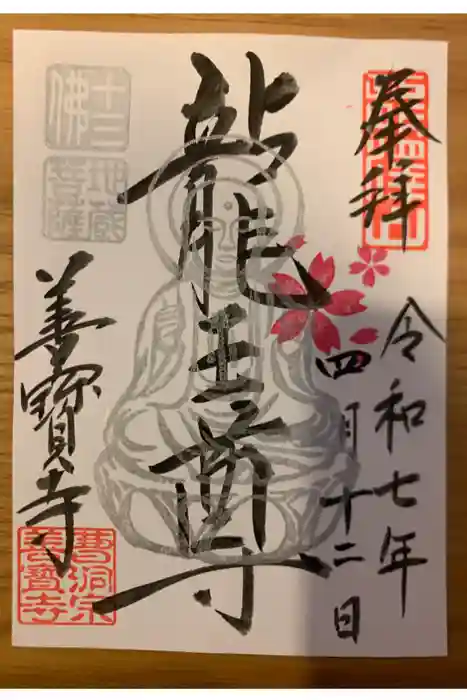 奉拝
令和七年
四月十二日
龍王尊
十三
佛
地蔵
菩薩
善寳寺
曹洞宗
善寳寺